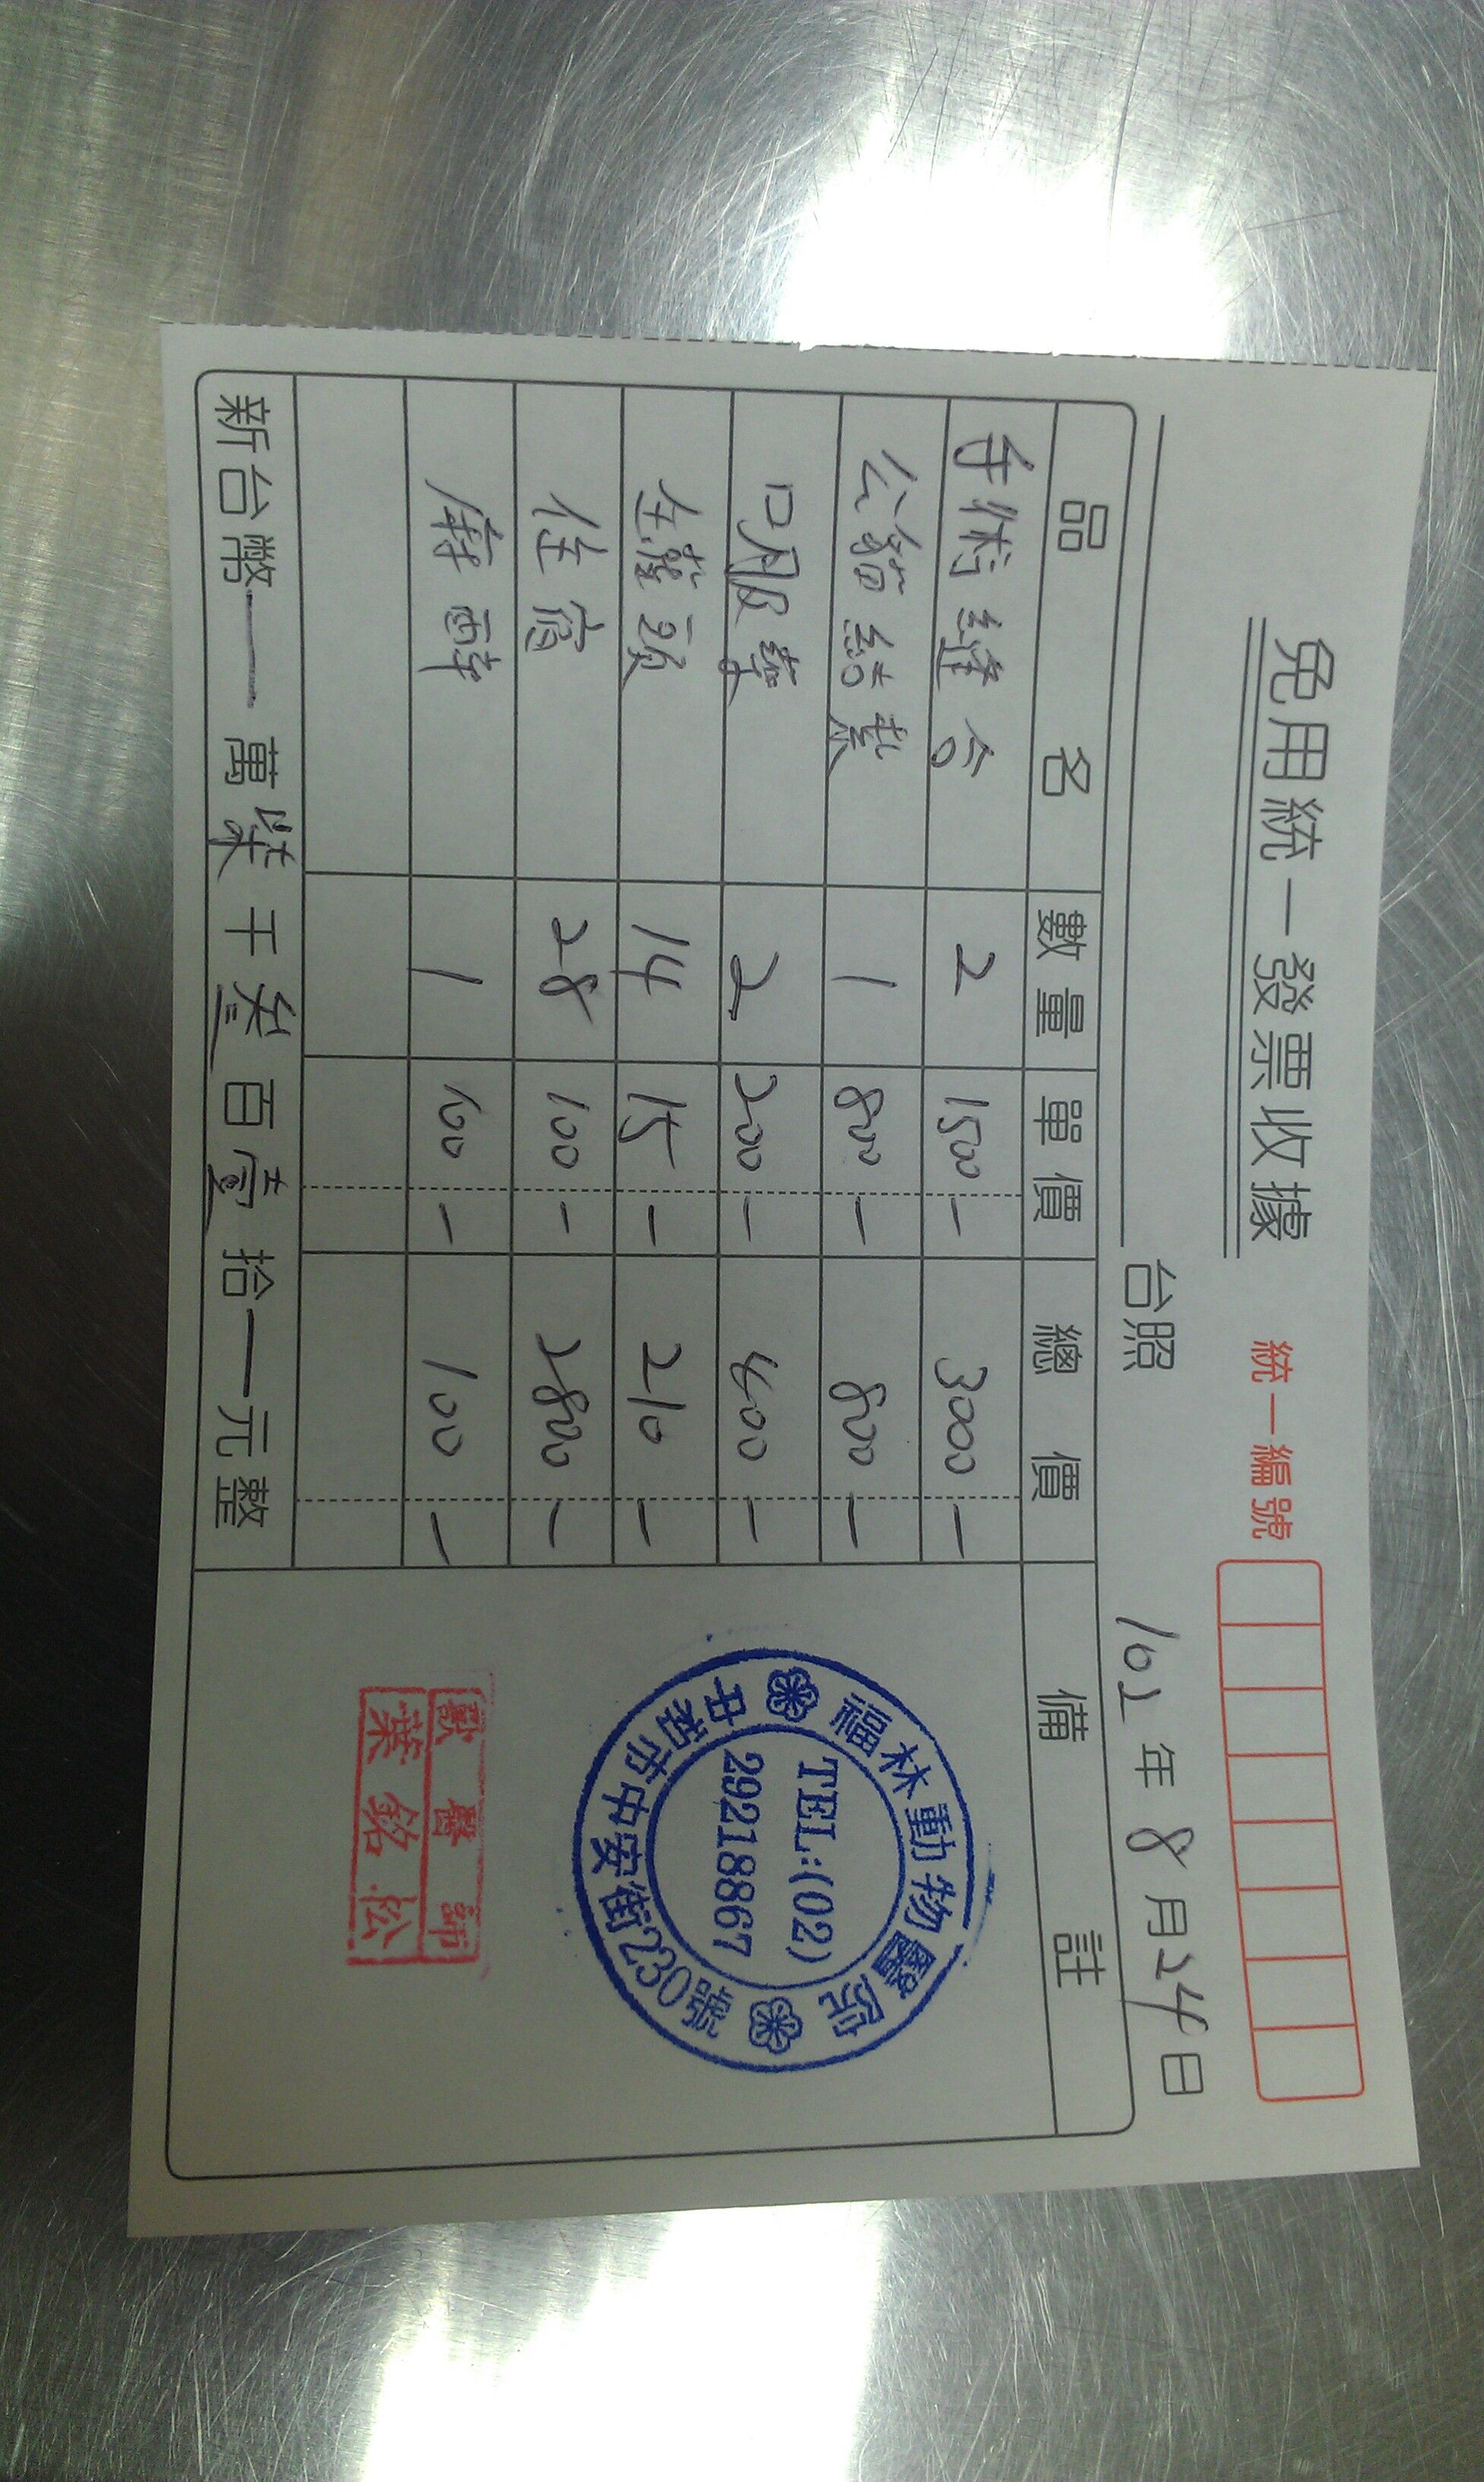 免用統一發票收據
統一編號
台照
102年8月24日
品名 數量 單價 總價 備註
手術縫合 2 1500- 3000-
公貓結紮 1 800- 800-
口服藥 2 200- 400-
14 15- 210-
住宿 28 100- 2800-
麻醉 1 100- 100-
新台幣—萬柒千叁百壹拾—元整
福林動物醫院
TEL:(02)
29218867
市中安街230號
獸醫師
葉銘